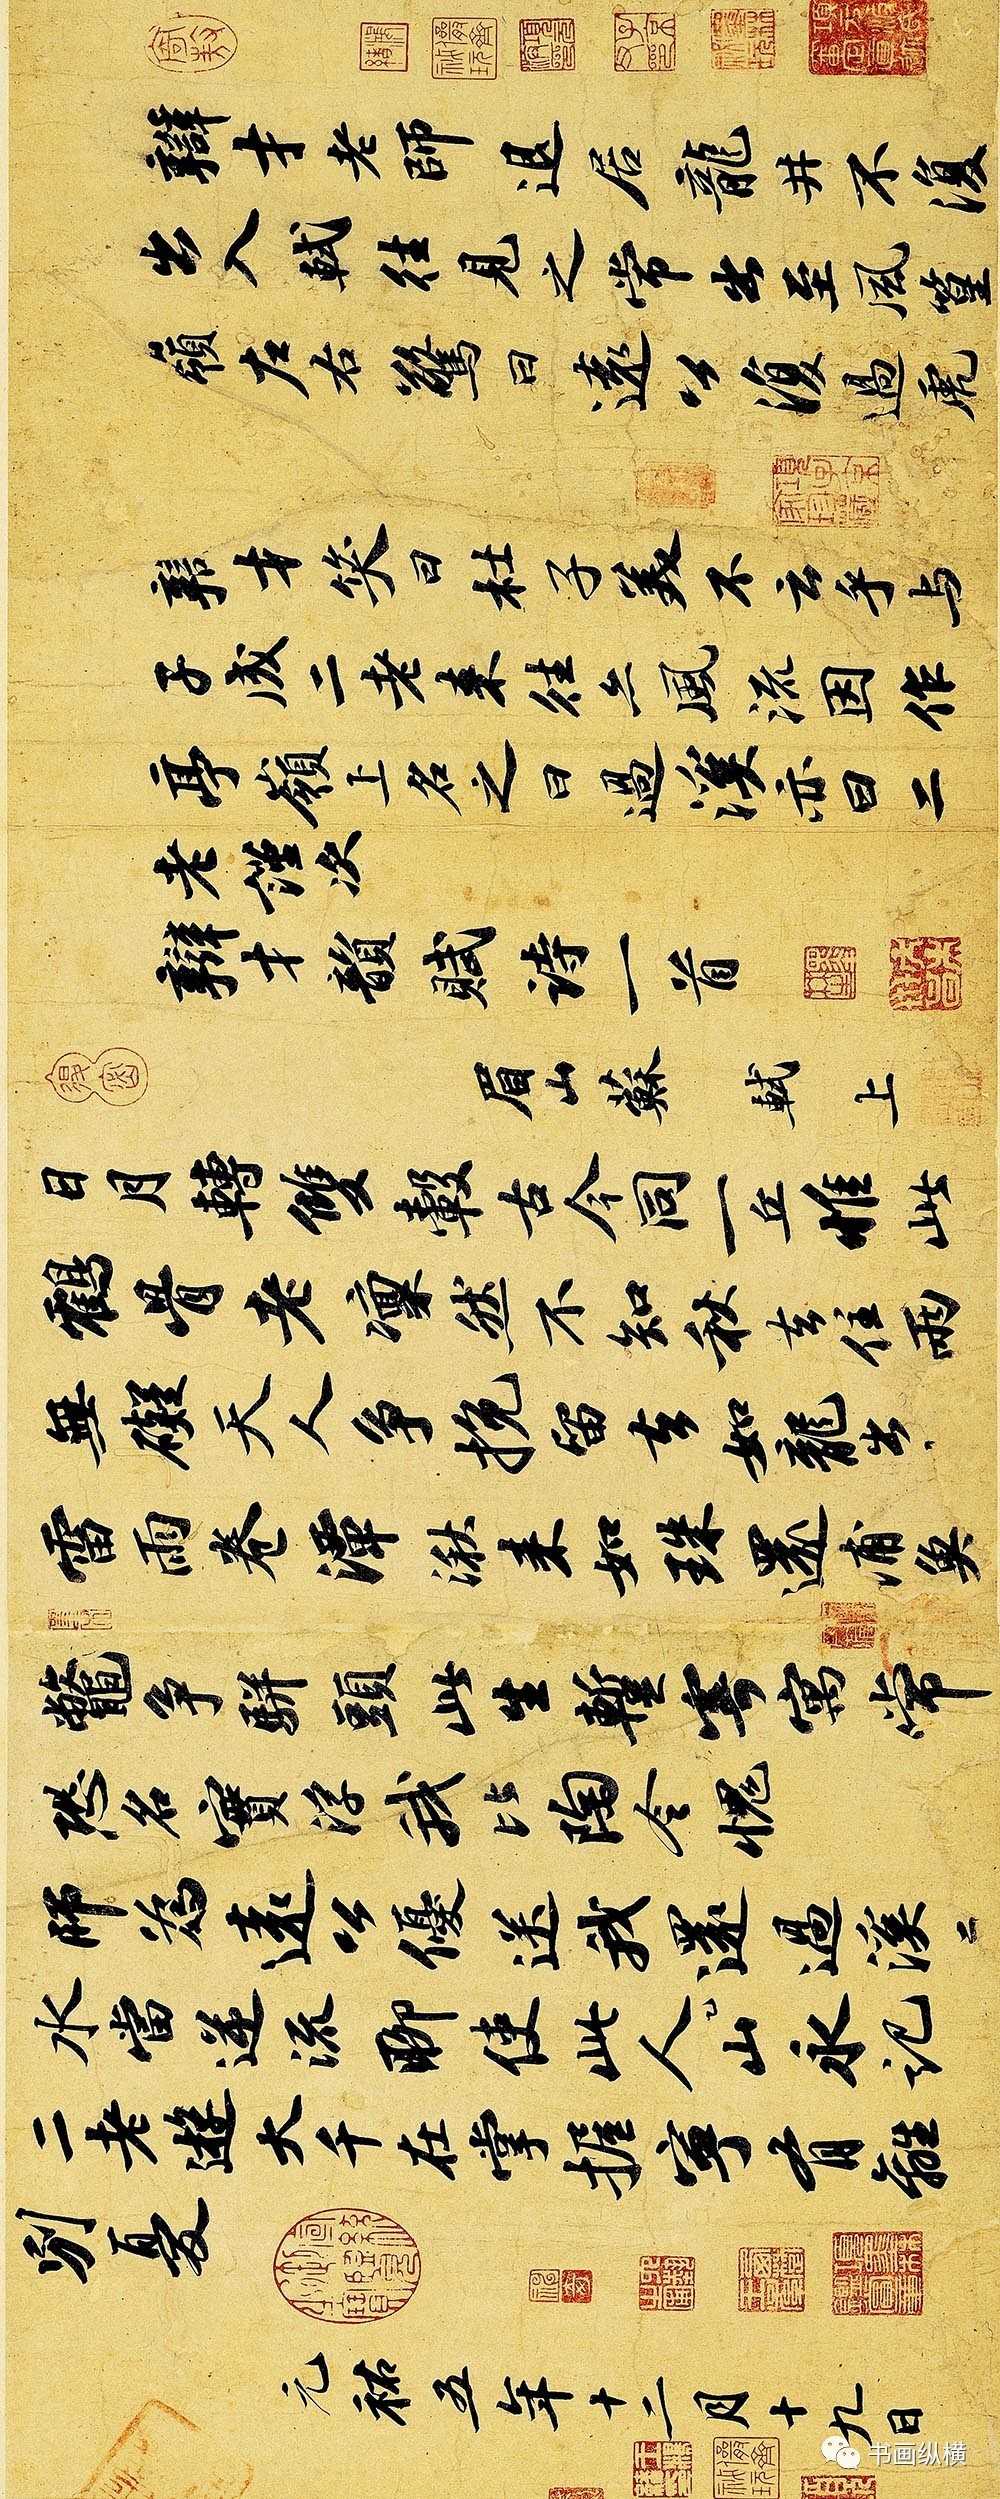 辯才老師退居龍井不復
出入軾往見之常出至風篁
嶺左右驚曰遠公復過虎
辯才笑曰杜子美不云乎与
子成二老來往亦風流因作
亭嶺上名之曰過溪亦曰二
老謹次
辯才韻賦詩一首
眉山蘇軾上
日月轉雙轂古今同一丘惟此
鶴骨老凜然不知秋去住兩
無礙天人爭挽留去如龍出
雷雨卷潭湫來如珠還浦魚
鼈爭駢頭此生暫寄寓常
恐名實浮我比陶令愧
師為遠公優送我還過溪〻
水當逆流聊使此人山永記
二老遊大千在掌握寧有離
別憂
元祐五年十二月十九日
书画纵横